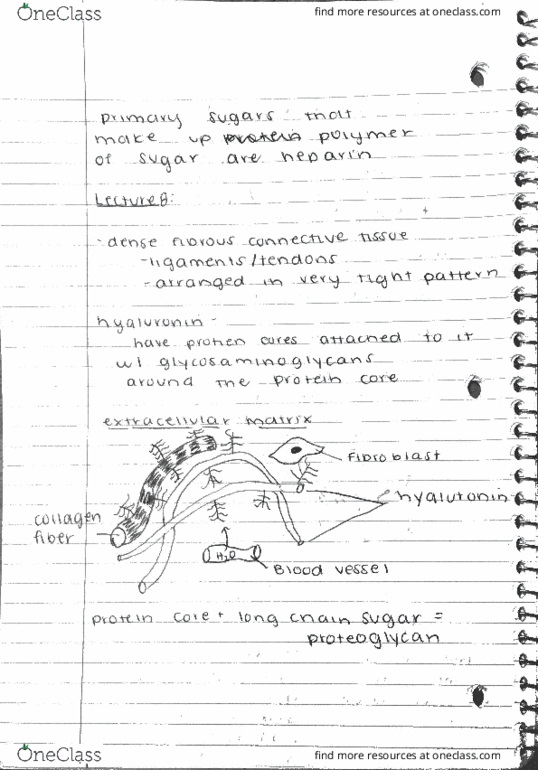 OneClass
find more resources at oneclass.com
primary sugars that
make up protein polymer
of sugar are heparin
Lecture 8:
-dense fibrous connective tissue
-ligaments/tendons
-arranged in very tight pattern
hyaluronin-
have protien cores attached to it
w/ glycosaminoglycans
around the protein core
extracellular matrix
Fibroblast
hyaluronin
collagen
fiber
H2O
Blood vessel
protein core + long chain sugar =
proteoglycan
OneClass
find more resources at oneclass.com